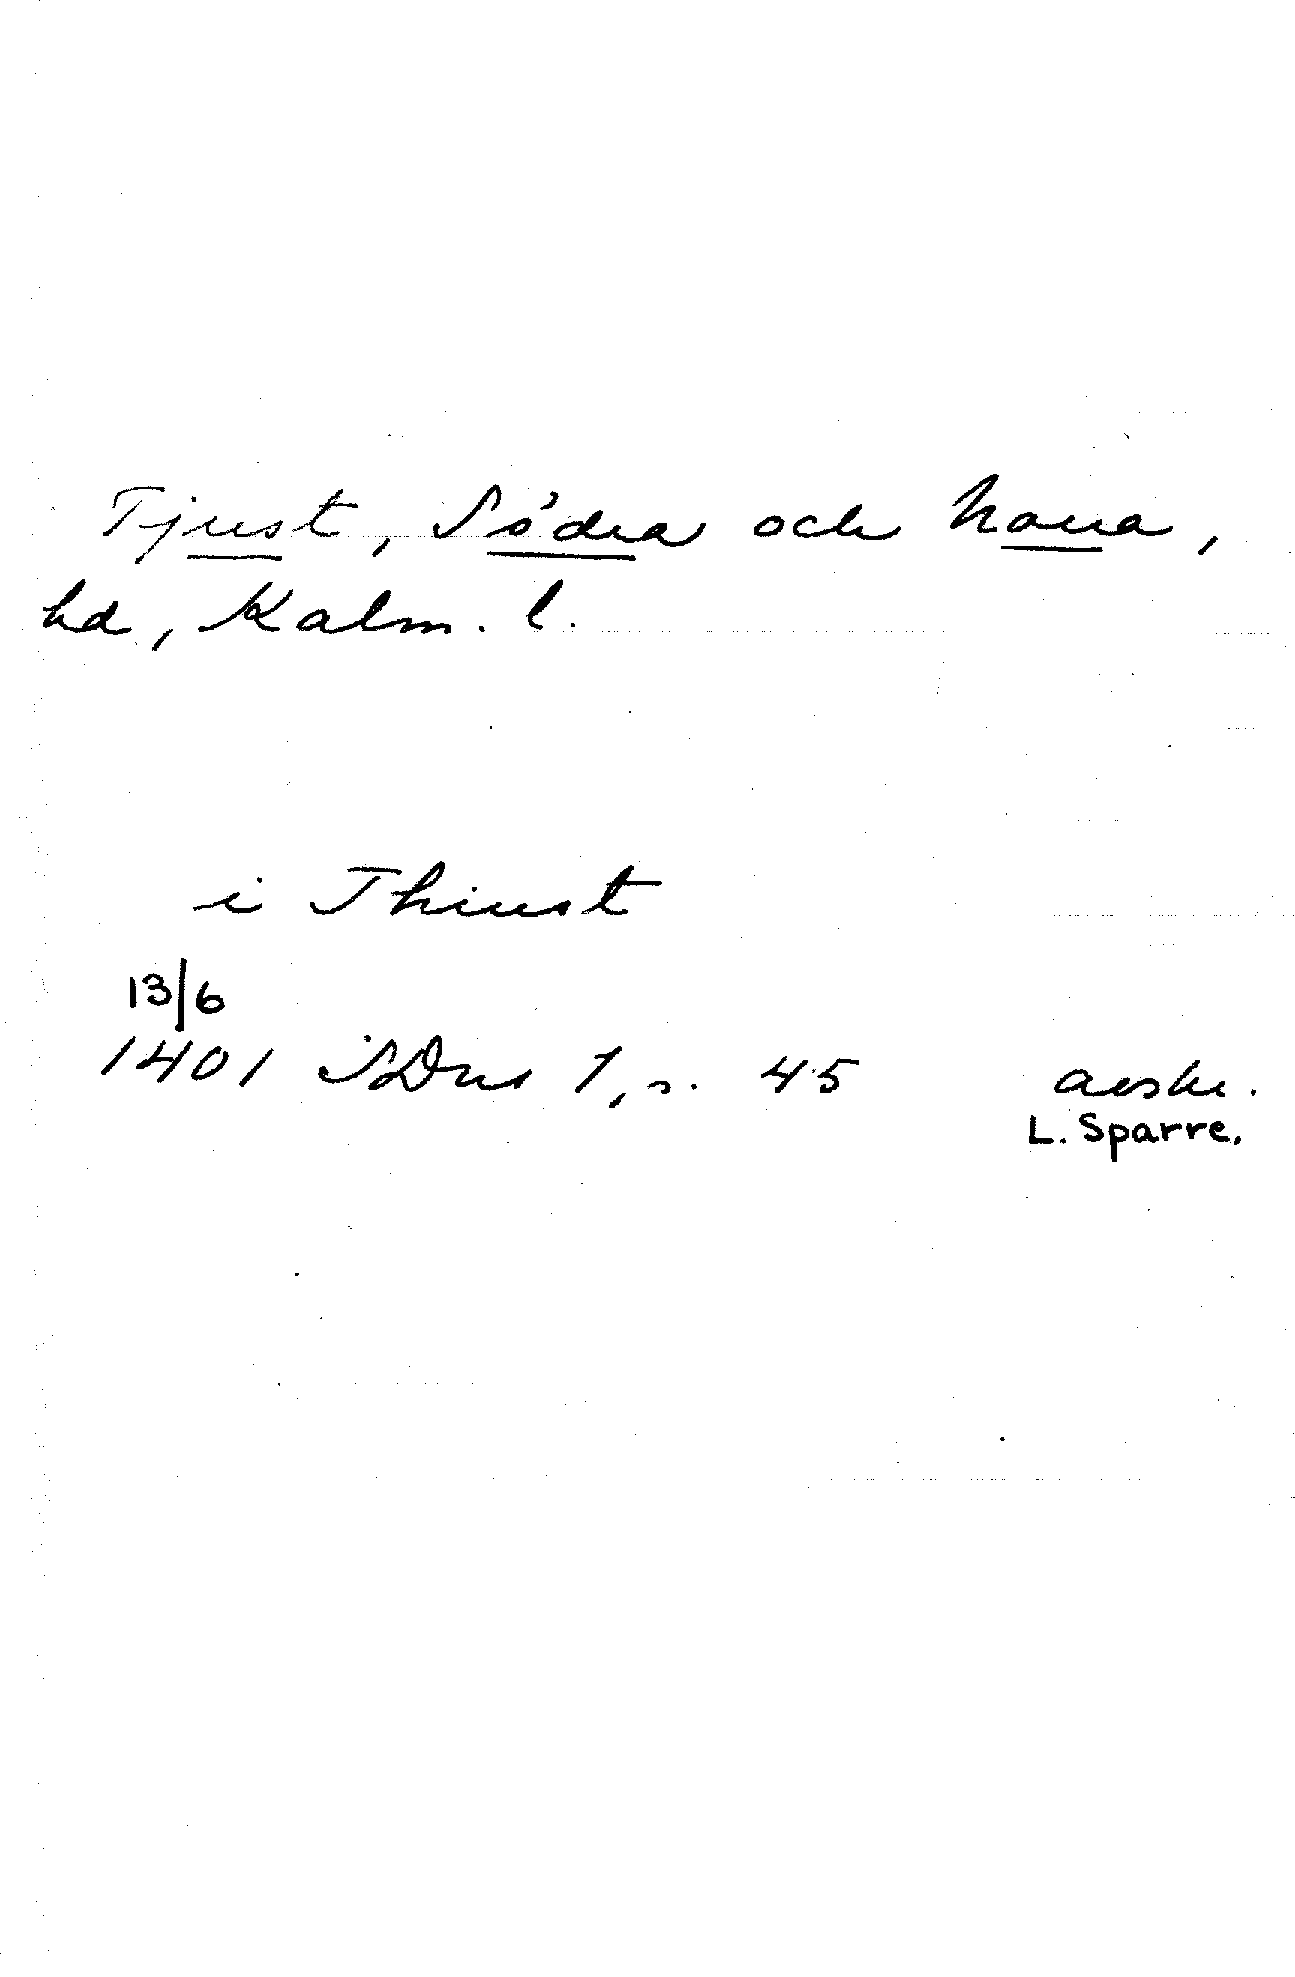 Tjust, Södra och Norra,
hd, Kalm. l.
i Thiust
13/6
1401 SDns 1, s. 45 avskr.
L. Sparre.